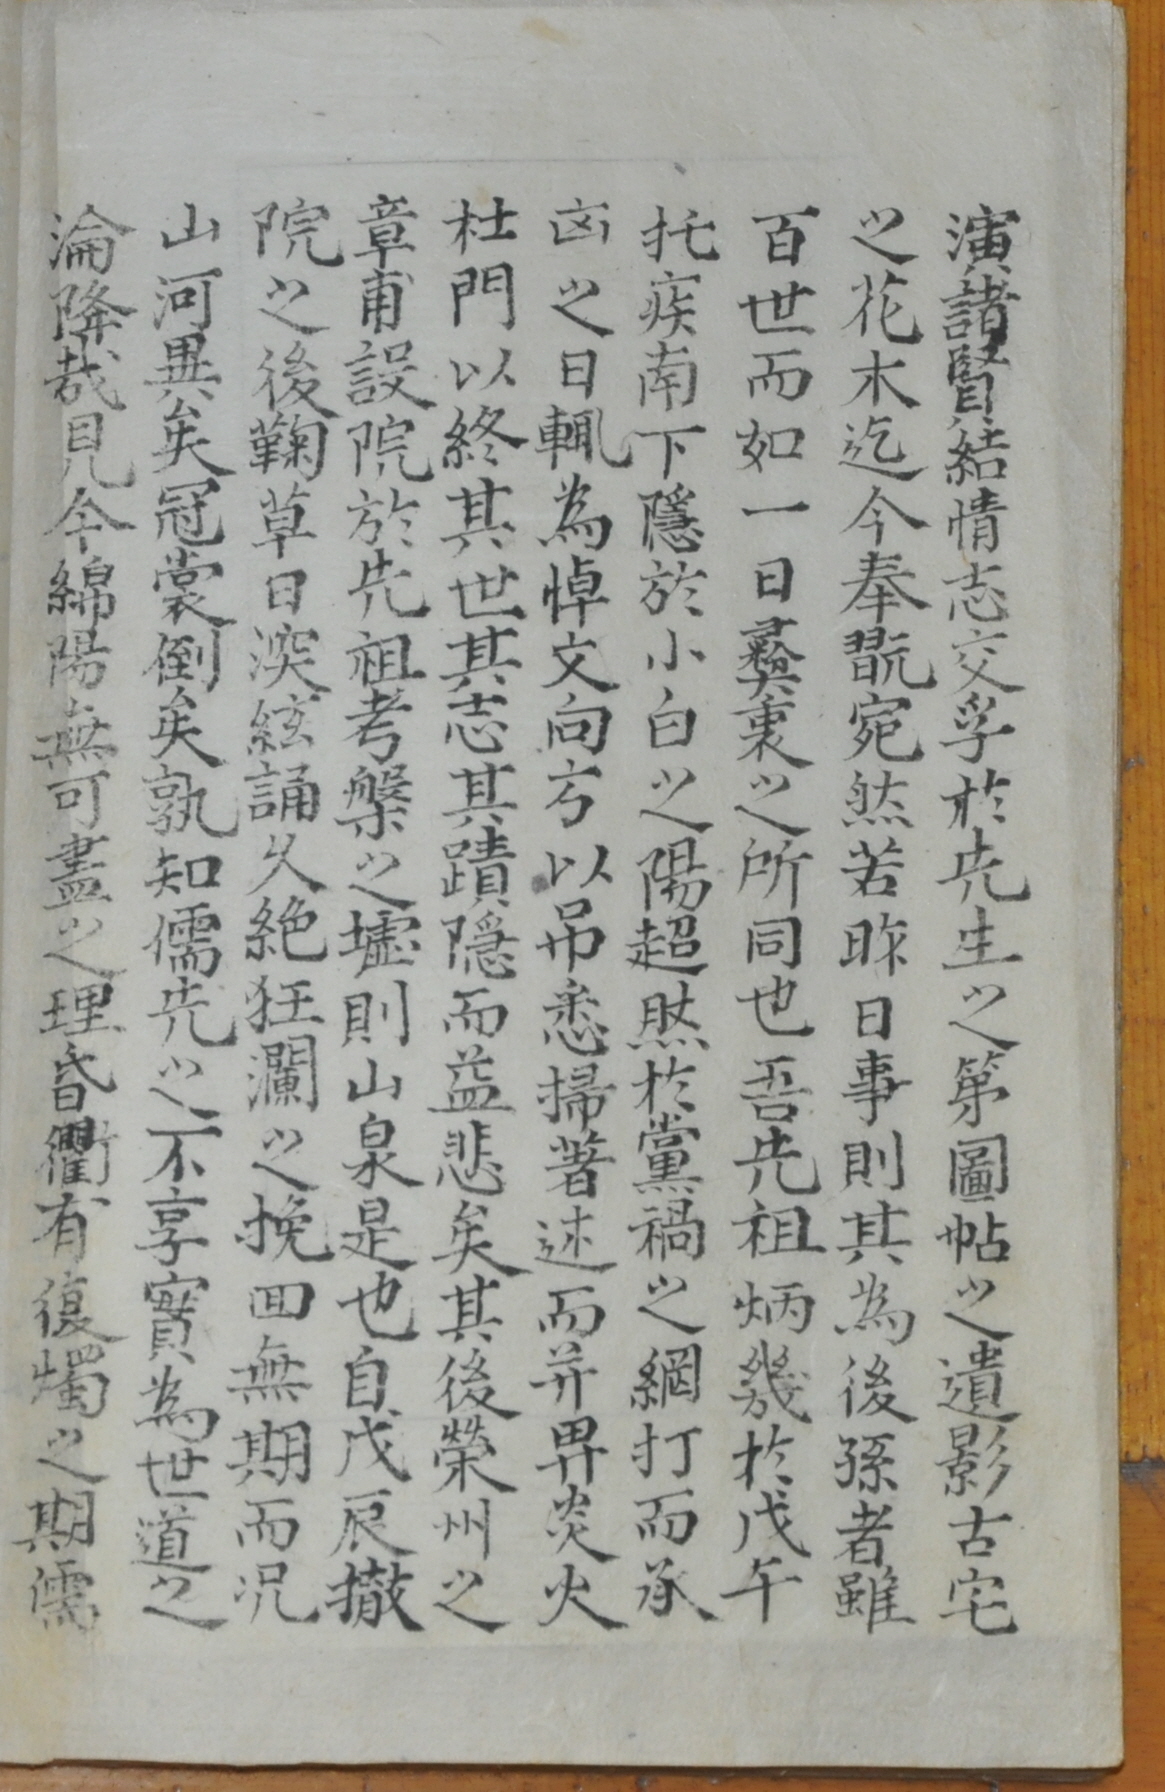 演諸賢結情志交孚於先生之第圖帖之遺影古宅
之花木迄今奉翫宛然若昨日事則其為後孫者雖
百世而如一日彛秉之所同也吾先祖炳幾於戊午
托疾南下隱於小白之陽超然於黨禍之網打而承
凶之日輒為悼文向方以吊悉掃著述而并畀炎火
杜門以終其世其志其蹟隱而益悲矣其後榮州之
章甫設院於先祖考槃之墟則山泉是也自戊辰撤
院之後鞠草日深絃誦久絶狂瀾之挽回無期而况
山河異矣冠裳倒矣孰知儒先之不享實為世道之
淪降哉見今綿陽無可盡之理昏衢有復燭之期儒